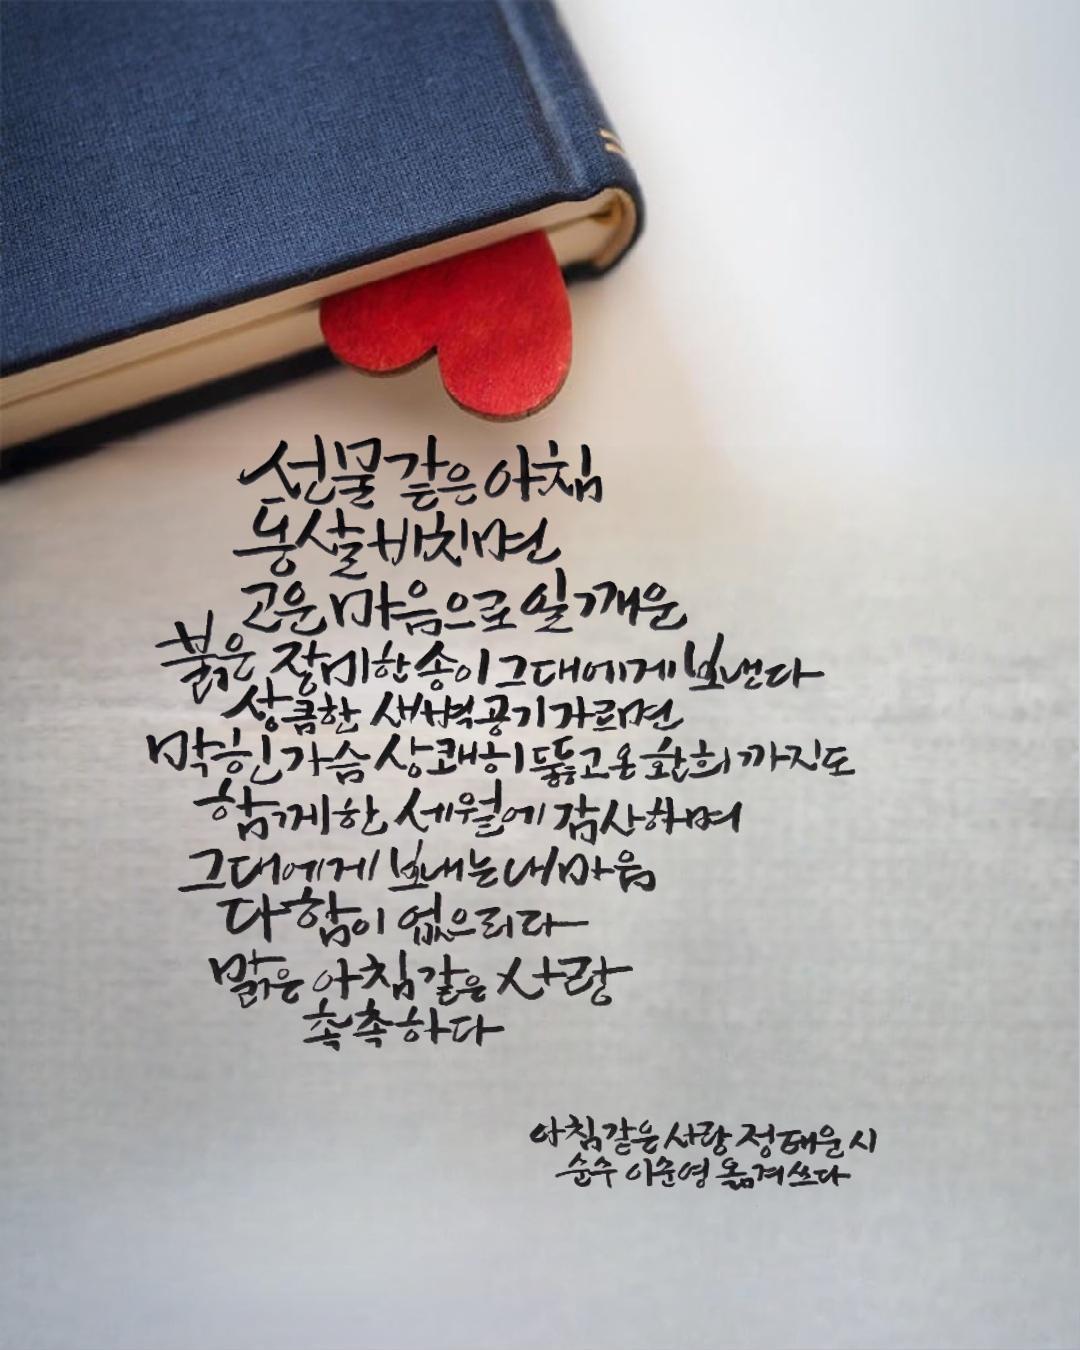 선물 같은 아침
동살 비치면
고운 마음으로 일깨운
붉은 장미 한 송이 그대에게 보낸다
상큼한 새벽 공기 가르면
막힌 가슴 상쾌히 뚫고 온 환희까지도
함께한 세월에 감사하며
그대에게 보내는 내 마음
다함이 없으리라
맑은 아침 같은 사랑
촉촉하다
아침 같은 사랑 정태운 시
순수 이순영 옮겨 쓰다